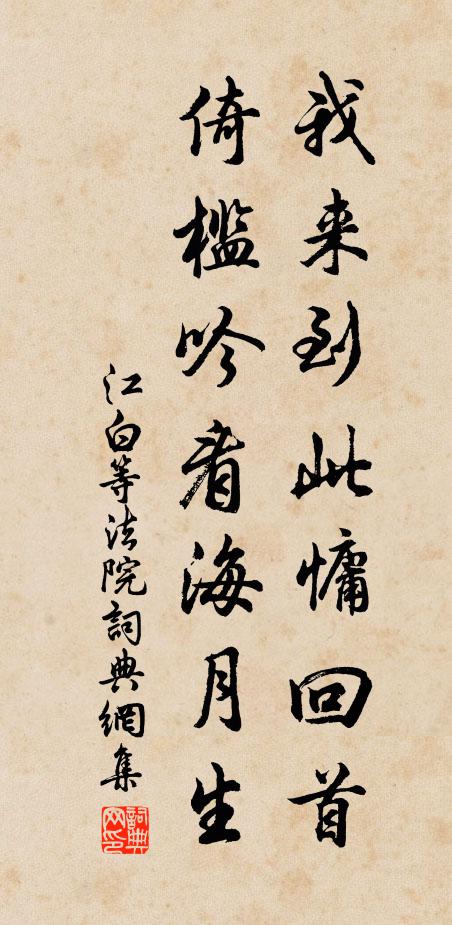 我来到此慵回首
倚槛吟看海月生
江白等法院詞典網集
詞典网印